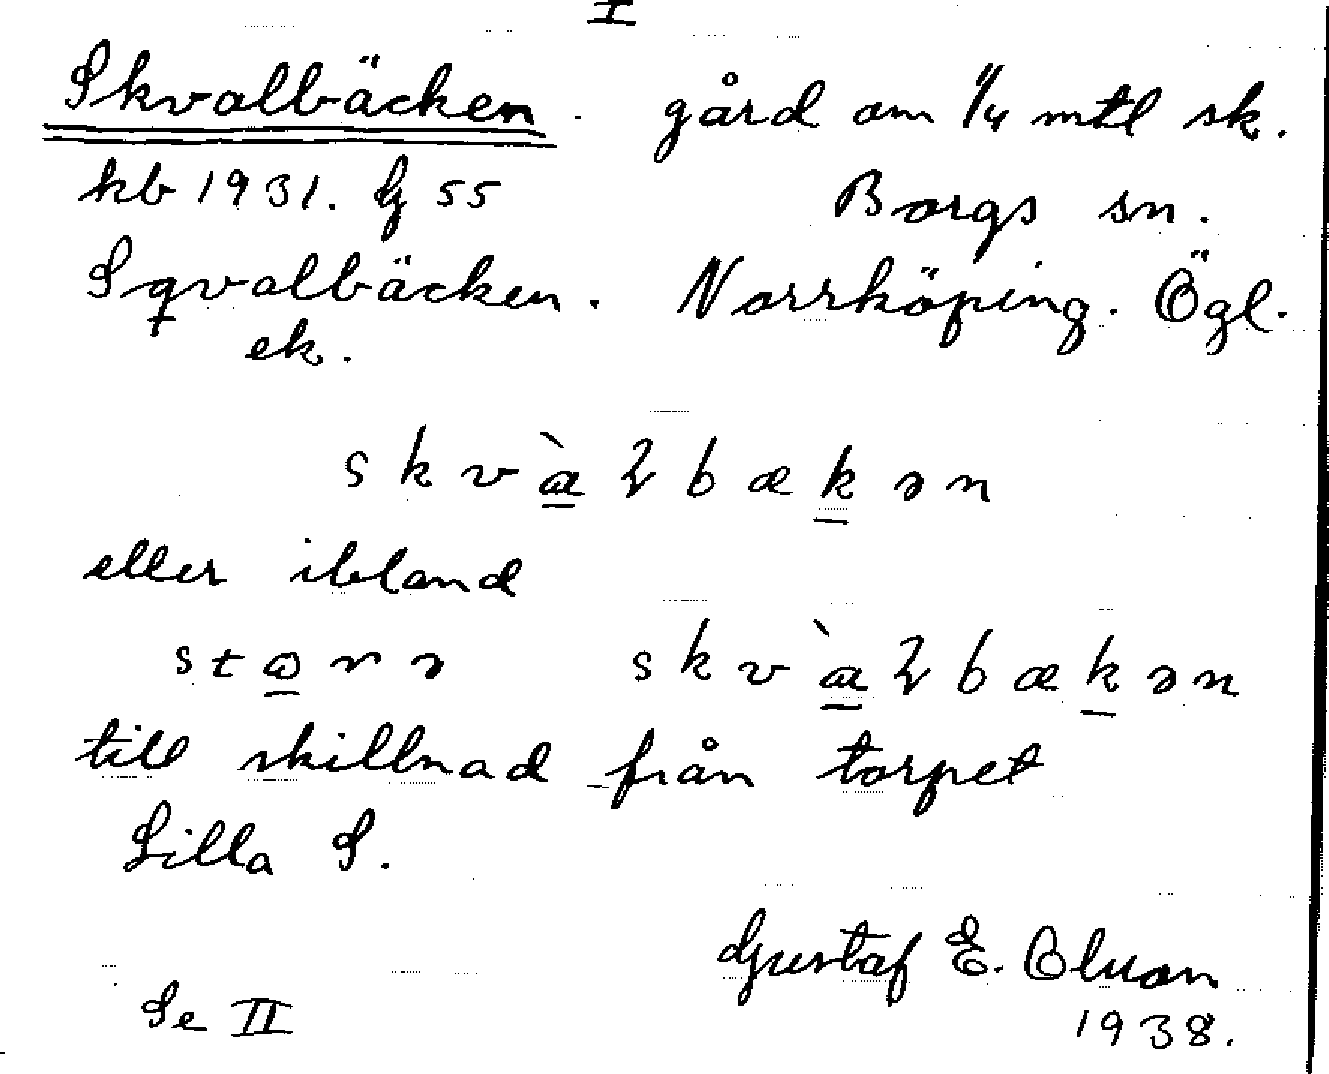 I
Skvalbäcken. gård om 1/4 mtl sk.
kb 1931. lj 55 Borgs sn.
Sqvalbäcken. Norrköping. Ögl.
ek.
skvàɽbækən
eller ibland
stɷrə skvàɽbækən
till skillnad från torpet
Lilla S.
Gustaf E. Oluson
Se II 1938.